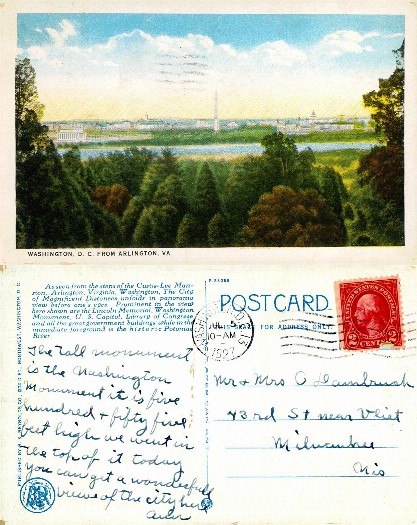 WASHINGTON, D. C. FROM ARLINGTON, VA
As seen from the steps of the Custis-Lee Man-
sion, Arlington, Virginia, Washington, The City
of Magnificent Distances unfolds in panorama
view before one's eyes. Prominent in the view
here shown are the Lincoln Memorial, Washington
Monument, U. S. Capitol, Library of Congress
and all the great government buildings while in the
immediate foreground is the historic Potomac
River
The Tall monument
is the Washington
Monument it is five
hundred & fifty five
feet high we went in
the top of it today
you can get a wonderfull
view of the city here
POSTCARD.
THIS SPACE FOR ADDRESS ONLY
WASHINGTON, D.C.
JUL 5
10-AM
1927
UNITED STATES POSTAGE
2 CENTS 2
Mr & Mrs O Dambruch
43rd St near Vliet
Milwaukee
Wis